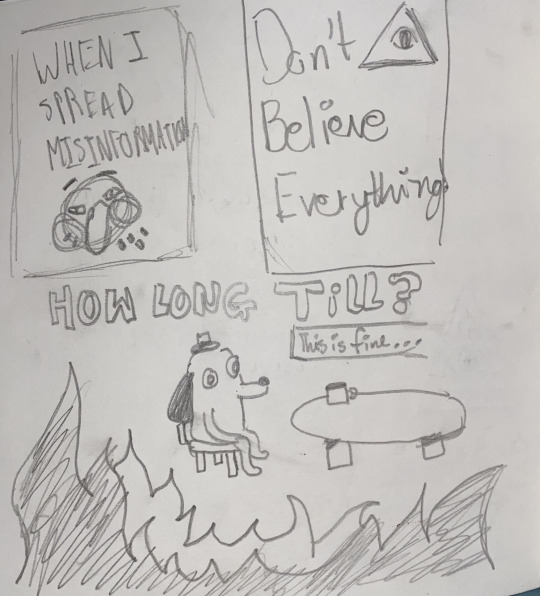 WHEN I
SPREAD
MISINFORMATION
Don't
Believe
Everything
HOW LONG TILL?
This is fine...